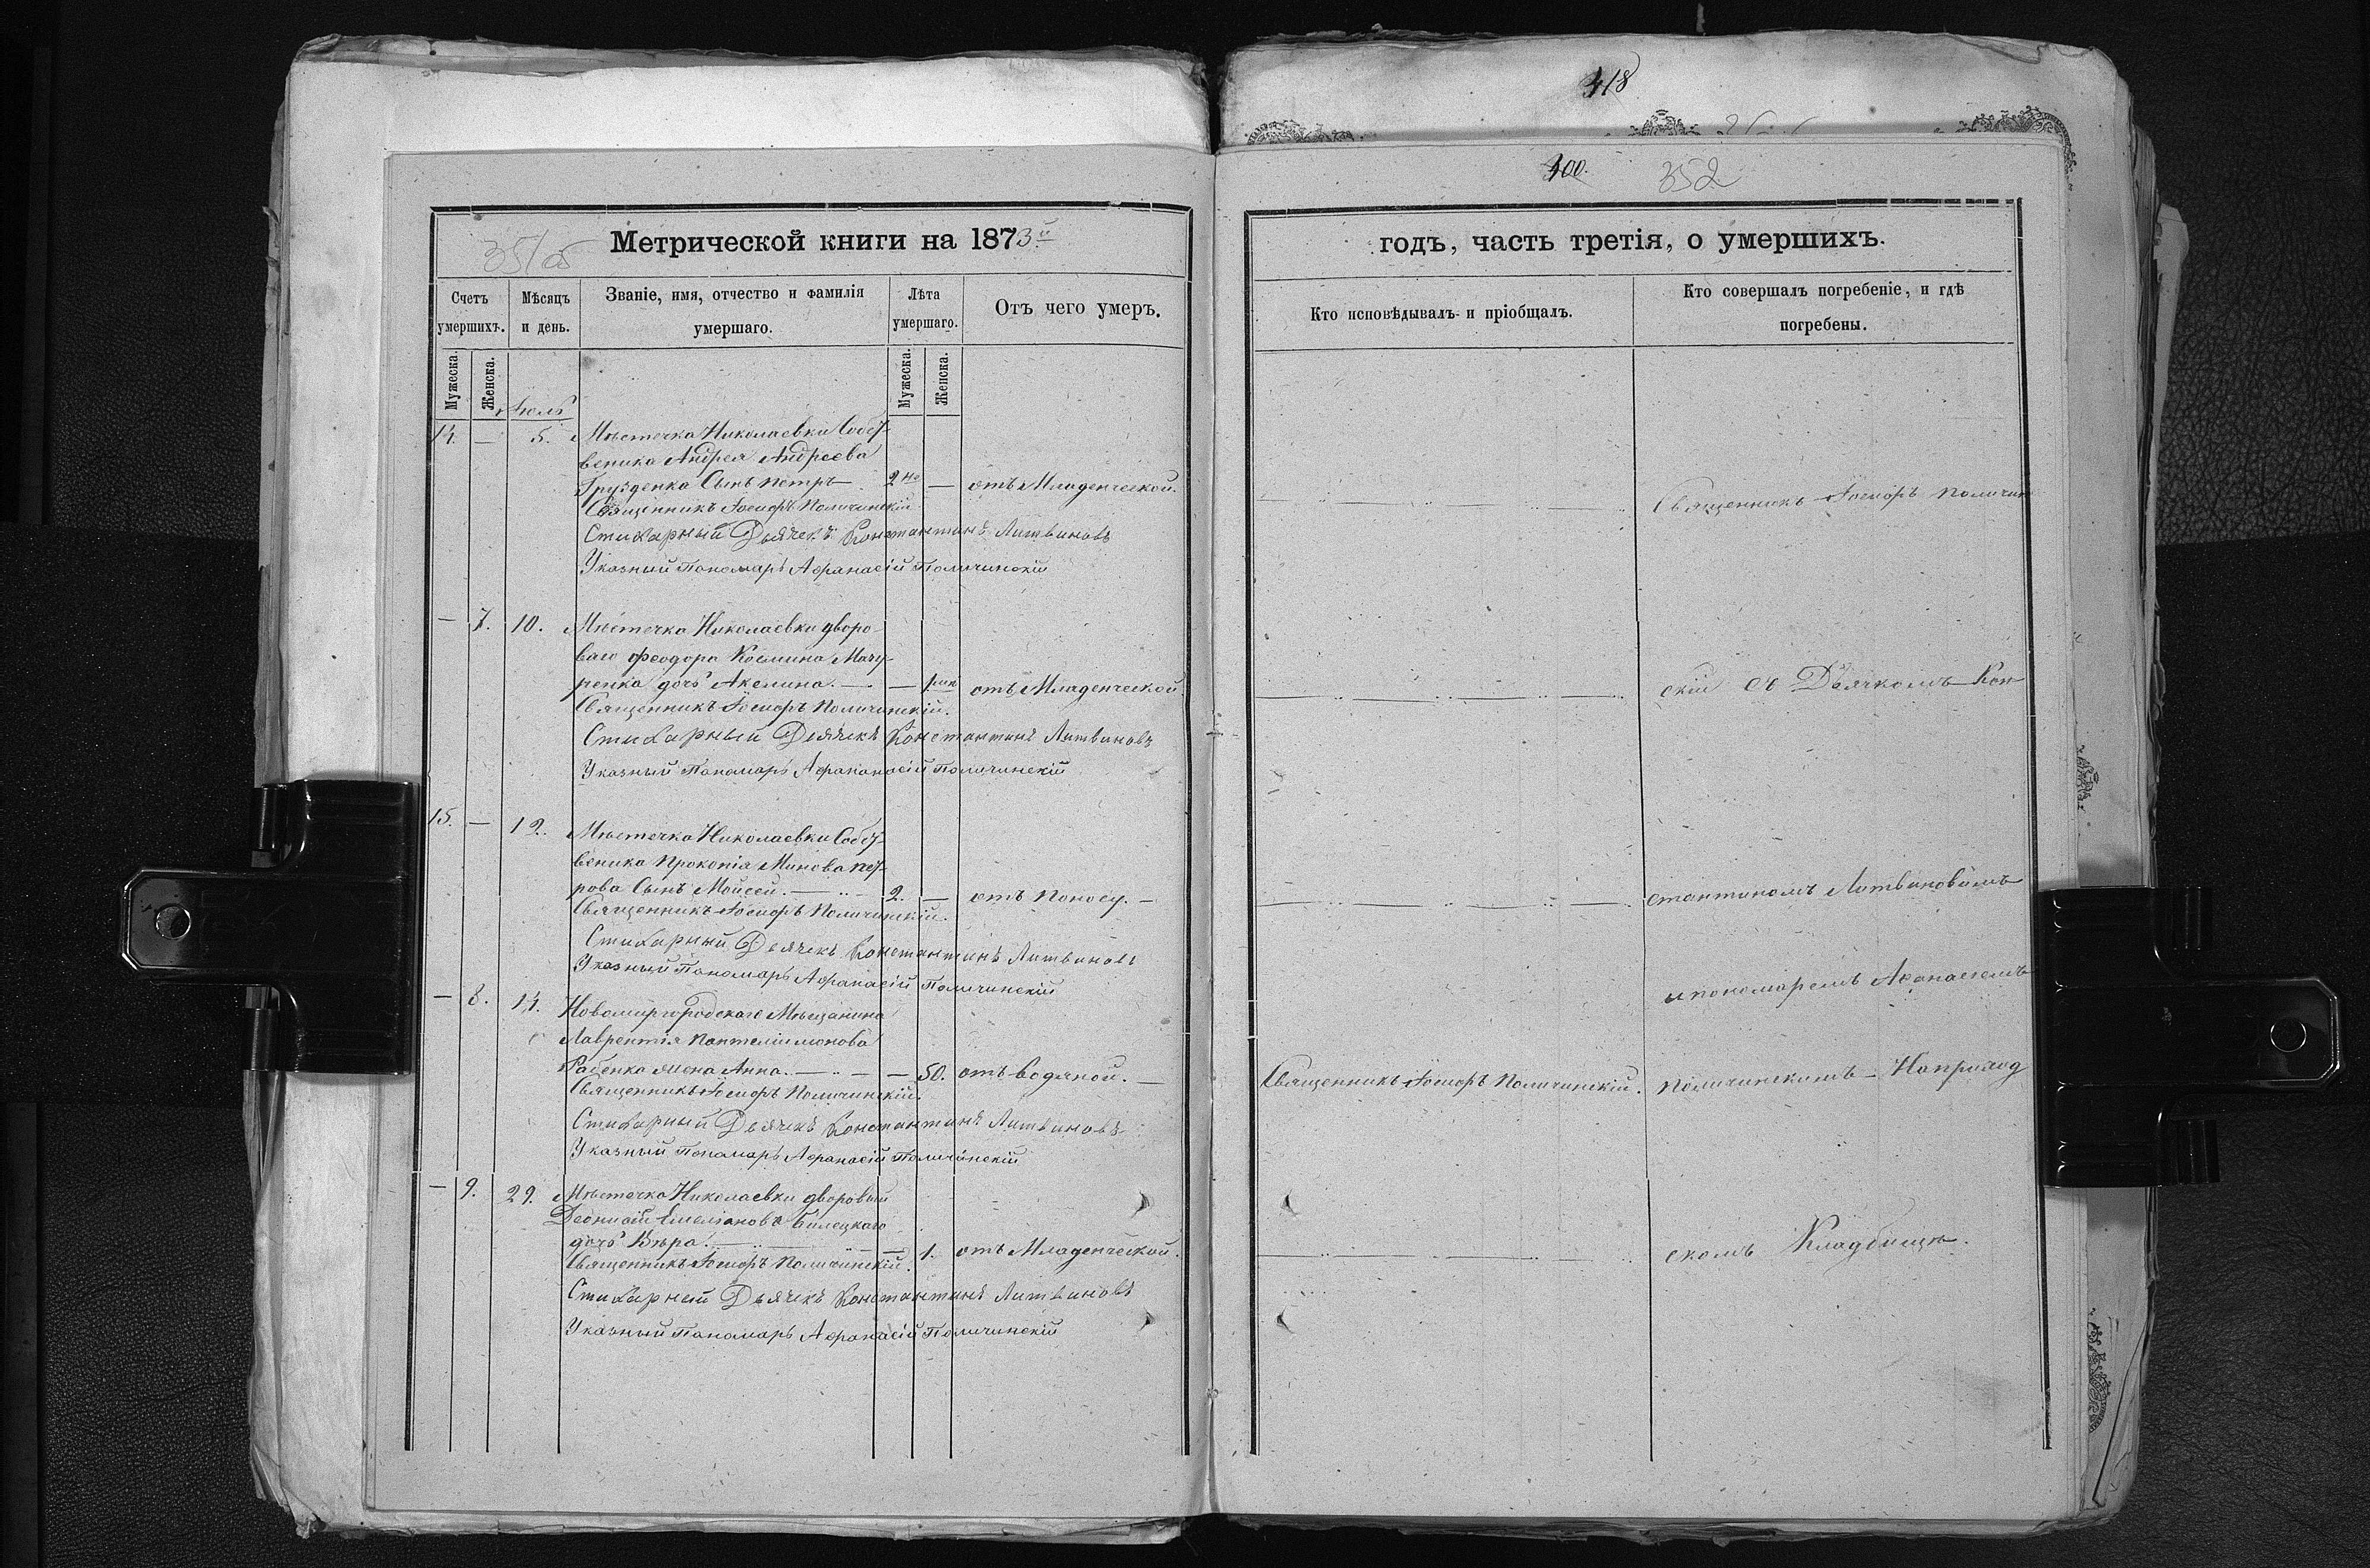 418
400.
352
351об
Метрической книги на 1873й
годъ, часть третія, о умершихъ.
Счетъ умершихъ.
Мѣсяцъ и день.
Званіе, имя, отчество и фамилія умершаго.
Лѣта умершаго.
Отъ чего умеръ.
Кто исповѣдывалъ и пріобщалъ.
Кто совершалъ погребеніе, и гдѣ погребены.
Мужеска.
Женска.
Мужеска.
Женска.
Іюль
14. — 5. Мѣстечка Николаевки Собст-
веника Андрея Андреева
Грузденка Сынъ Петръ 2 не — отъ Младенческой.
Священникъ Іосифъ Поличинскій
Стихарный Дьячекъ Константинъ Литвиновъ
Указный Пономарь Афанасій Поличинскій
Священникъ Іосифъ Поличин
— 7. 10. Мѣстечка Николаевки дворо-
ваго Феодора Космина Мазу-
ренка дочь Акелина. — — 1 отъ Младенческой
Священникъ Іосифъ Поличинскій.
Стихарный Дьячекъ Константинъ Литвиновъ
Указный Пономарь Афанасій Поличинскій
скій съ Дьячкомъ Кон
15. — 12. Мѣстечка Николаевки Собст-
веника Прокопія Минова Пет-
рова Сынъ Мойсей. — 2. — отъ Поносу. —
Священникъ Іосифъ Поличинскій.
Стихарный Дьячекъ Константинъ Литвиновъ
Указный Пономарь Афанасій Поличинскій
стантиномъ Литвиновымъ
и пономаремъ Афанасіемъ
— 8. 14. Новомиргородскаго Мѣщанина
Лаврентія Пантелиимонова
Рабенка жена Анна. — — 50. отъ водяной. —
Священникъ Іосифъ Поличинскій.
Стихарный Дьячекъ Константинъ Литвиновъ
Указный Пономарь Афанасій Поличинскій
Священникъ Іосифъ Поличинскій.
Поличинскимъ На приход
— 9. 29. Мѣстечка Николаевки дворовый
Деонисій Емеліановъ Билецкаго
дочь Вѣра. — — 1. отъ Младенческой.
Священникъ Іосифъ Поличинскій.
Стихарный Дьячекъ Константинъ Литвиновъ
Указный Пономарь Афанасій Поличинскій
скомъ Кладбищѣ.